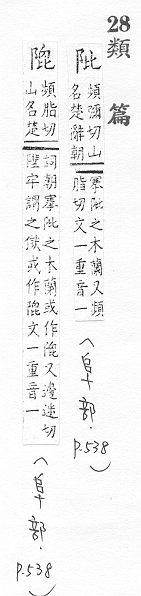 28 類篇
阰
頻彌切山
名楚辭朝
搴阰之木蘭又頻
脂切文一重音一
(阜部.
p.538)
頻脂切
山名楚
詞朝搴阰之木蘭或作 又邊迷切
陛牢謂之獄或作 文一重音一
(阜部.
p.538)